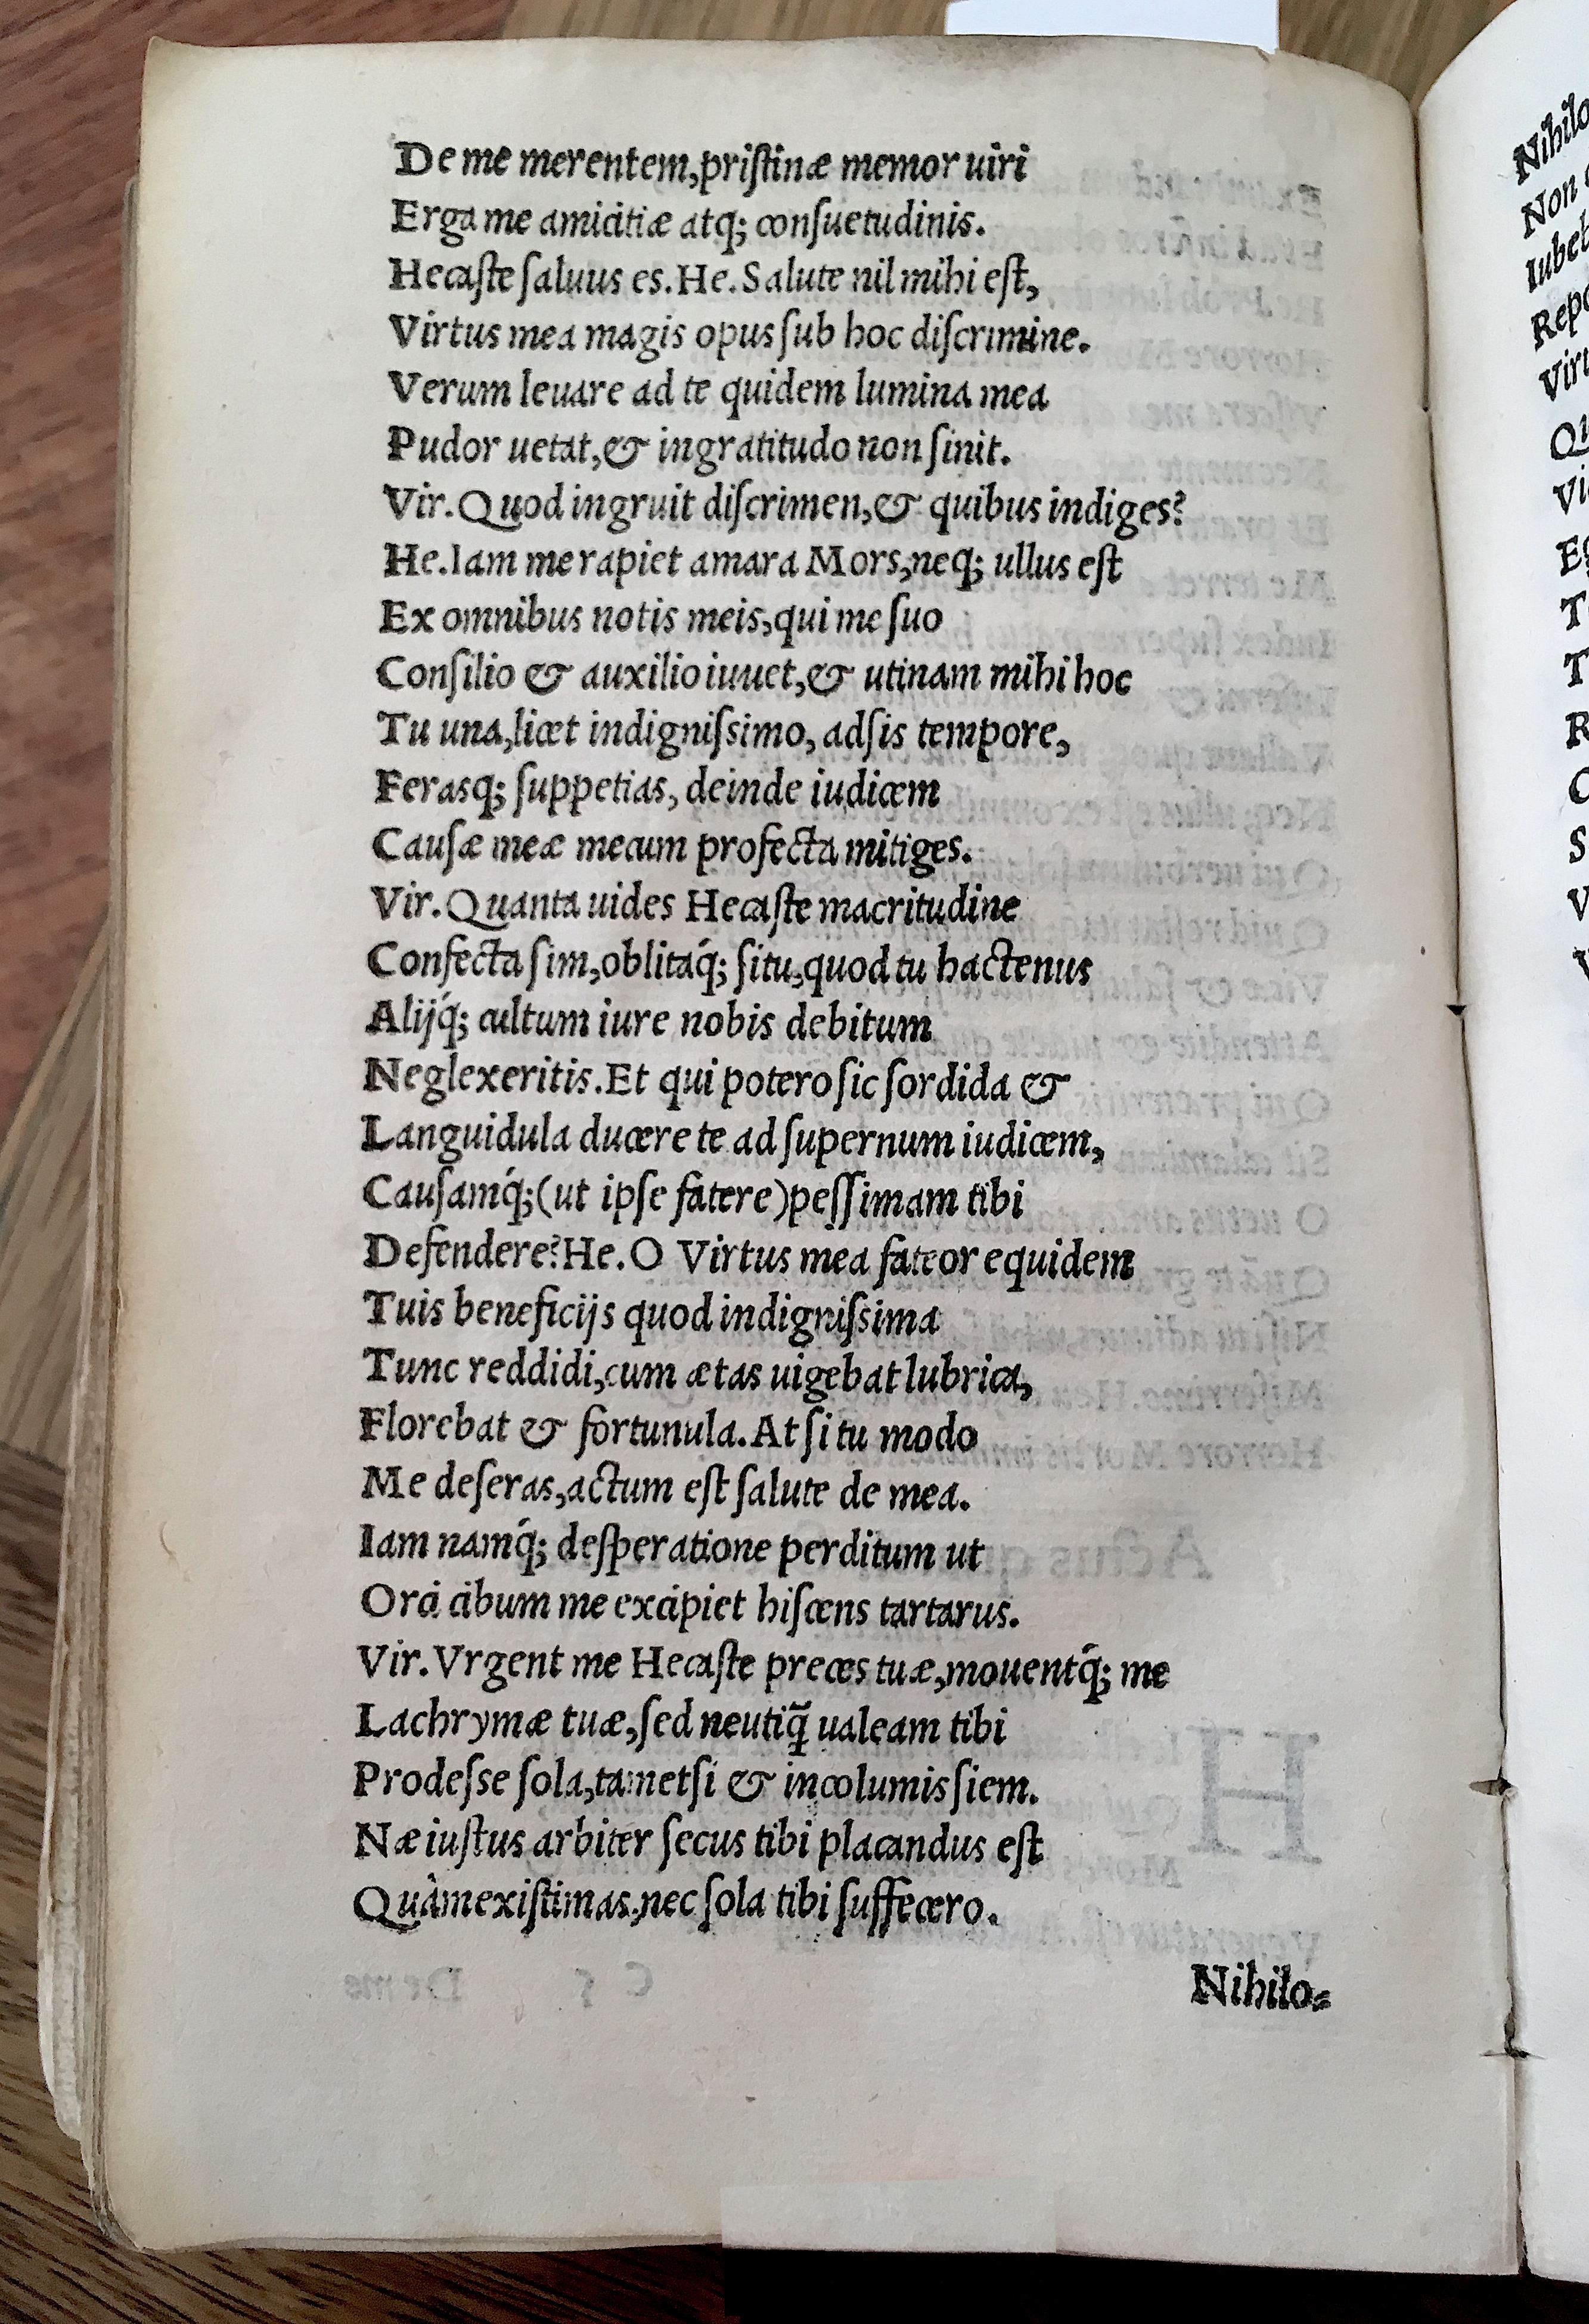 De me merentem,priſtinæ memor uiri
Erga me amicitiæ atq; conſuetudinis.
Hecaſte ſaluus es. He. Salute nil mihi eſt,
Virtus mea magis opus ſub hoc diſcrimine.
Verum leuare ad te quidem lumina mea
Pudor uetat,& ingratitudo non ſinit.
Vir. Quod ingruit diſcrimen,& quibus indiges?
He. Iam me rapiet amara Mors,neq; ullus eſt
Ex omnibus notis meis,qui me ſuo
Conſilio & auxilio iuuet,& utinam mihi hoc
Tu una,licet indigniſsimo, adſis tempore,
Ferasq; ſuppetias, deinde iudicem
Cauſæ meæ mecum profecta mitiges.
Vir. Quanta uides Hecaſte macritudine
Confecta ſim,oblitaq́; ſitu,quod tu hactenus
Alijq́; cultum iure nobis debitum
Neglexeritis. Et qui potero ſic ſordida &
Languidula ducere te ad ſupernum iudicem,
Cauſamq́;(ut ipſe fatere)peſſimam tibi
Defendere? He. O Virtus mea fateor equidem
Tuis beneficijs quod indigniſsima
Tunc reddidi,cum ætas uigebat lubrica,
Florebat & fortunula. At ſi tu modo
Me deſeras,actum eſt ſalute de mea.
Iam namq́; deſperatione perditum ut
Orci cibum me excipiet hiſcens tartarus.
Vir. Vrgent me Hecaſte preces tuæ,mouentq́; me
Lachrymæ tuæ,ſed neutiq̃ ualeam tibi
Prodeſse ſola,tametſi & incolumis ſiem.
Næ iuſtus arbiter ſecus tibi placandus eſt
Quàm exiſtimas,nec ſola tibi ſuffecero.
Nihilo=
Nihilo
Non
Iubet
Repo
Virt